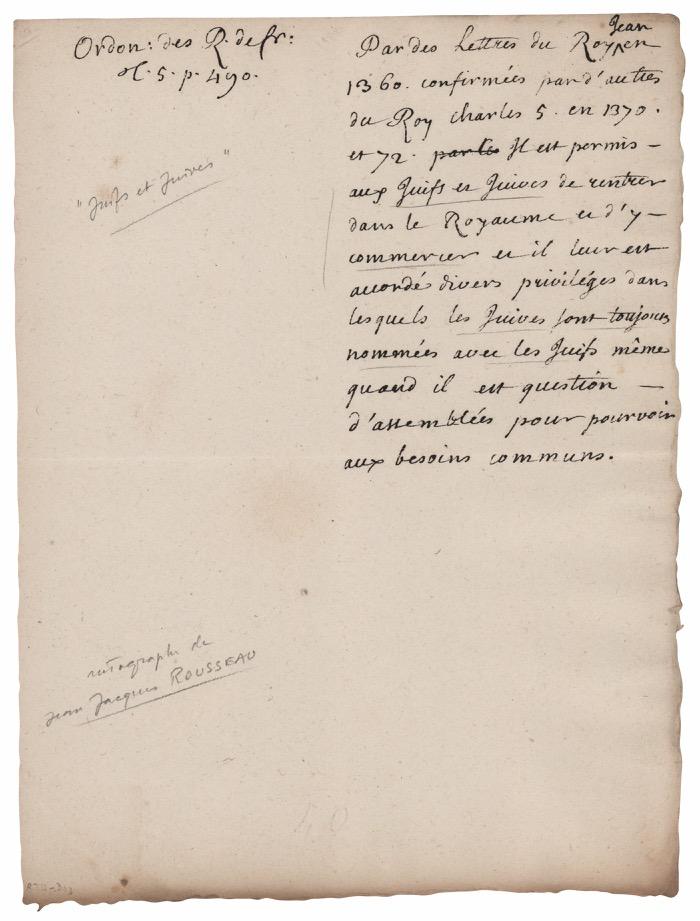 Ordon: des R. de fr:
t. 5. p. 490.
"Juifs et Juives"
autographe de
Jean Jacques ROUSSEAU
Par des Lettres du Roy Jean en
1360. confirmées par d'autres
du Roy Charles 5. en 1370.
et 72. par les Il est permis -
aux Juifs et Juives de rentrer
dans le Royaume et d'y -
commercer et il leur est
accordé divers privilèges dans
lesquels les Juives sont toujours
nommées avec les Juifs même
quand il est question -
d'assemblées pour pourvoir
aux besoins communs.
40